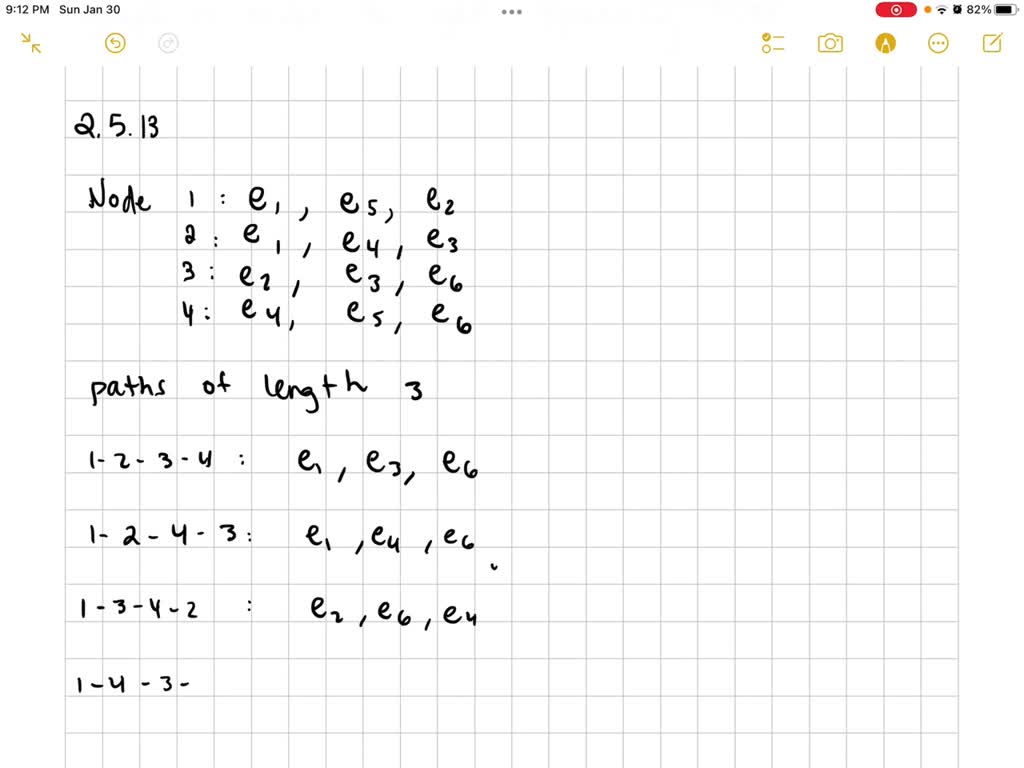 9:12 PM Sun Jan 30 82%
2.5.13
Node 1 : e1, e5, e2
2 : e1, e4, e3
3 : e2, e3, e6
4 : e4, e5, e6
paths of length 3
1-2-3-4 : e1, e3, e6
1-2-4-3 : e1, e4, e6
1-3-4-2 : e2, e6, e4
1-4-3-